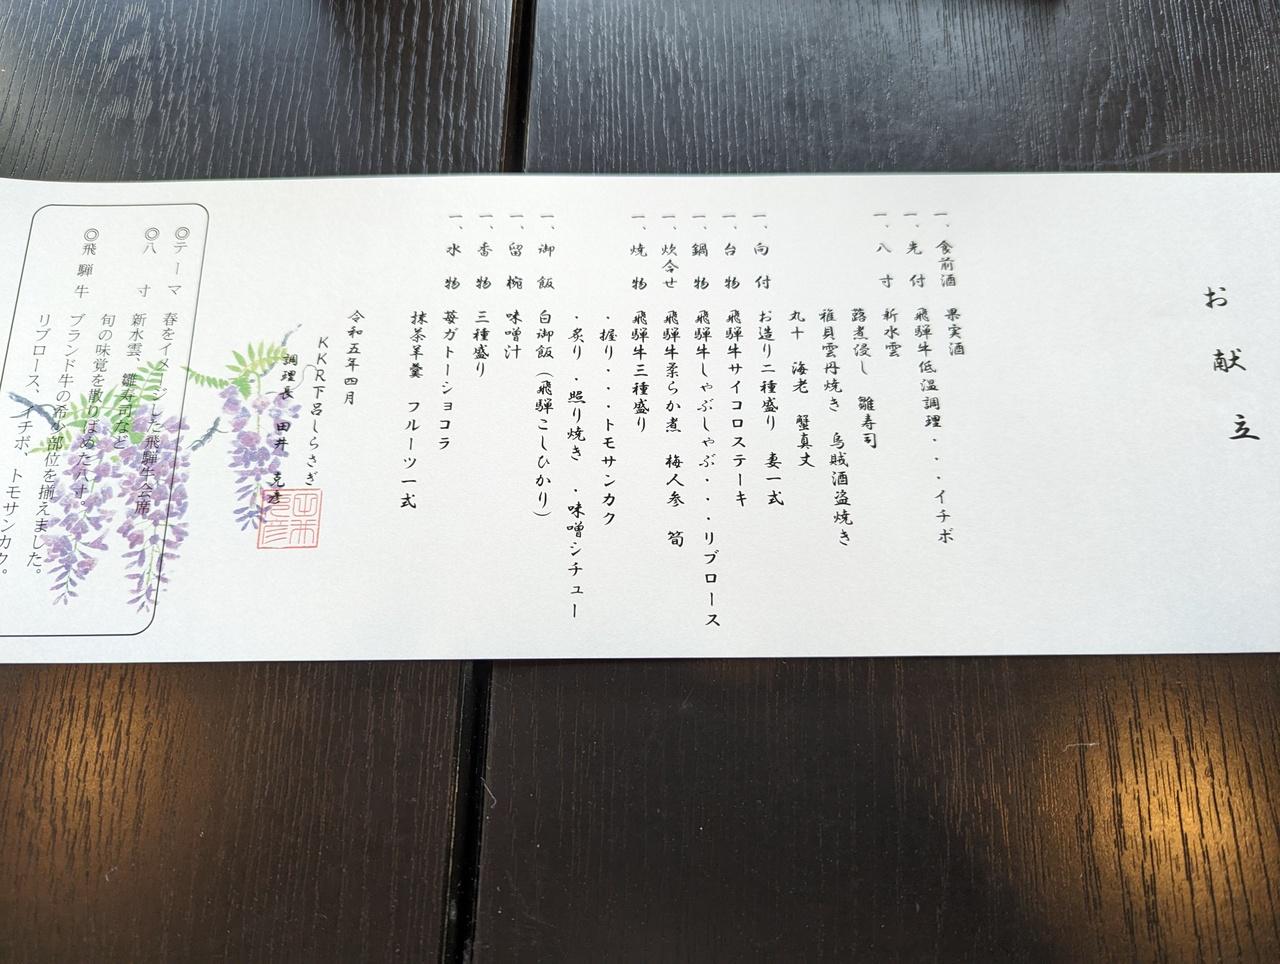 お献立
一、食前酒 果実酒
一、先付 飛騨牛低温調理・・・イチボ
一、八寸 新水雲
蕗煮浸し 雛寿司
稚貝雲丹焼き 烏賊酒盗焼き
丸十 海老 蟹真丈
一、向付 お造り二種盛り 妻一式
一、台物 飛騨牛サイコロステーキ
一、鍋物 飛騨牛しゃぶしゃぶ・・・リブロース
一、炊合せ 飛騨牛柔らか煮 梅人参 筍
一、焼物 飛騨牛三種盛り
・握り・・・トモサンカク
・炙り ・照り焼き ・味噌シチュー
一、御飯 白御飯（飛騨こしひかり）
一、留椀 味噌汁
一、香物 三種盛り
一、水物 苺ガトーショコラ
抹茶羊羹 フルーツ一式
令和五年四月
KKR下呂しらさぎ
調理長 田井 克彦
◎テーマ 春をイメージした飛騨牛会席
◎八寸 新水雲、雛寿司など
旬の味覚を散りばめた八寸。
◎飛騨牛 ブランド牛の希少部位を揃えました。
リブロース、イチボ、トモサンカク。